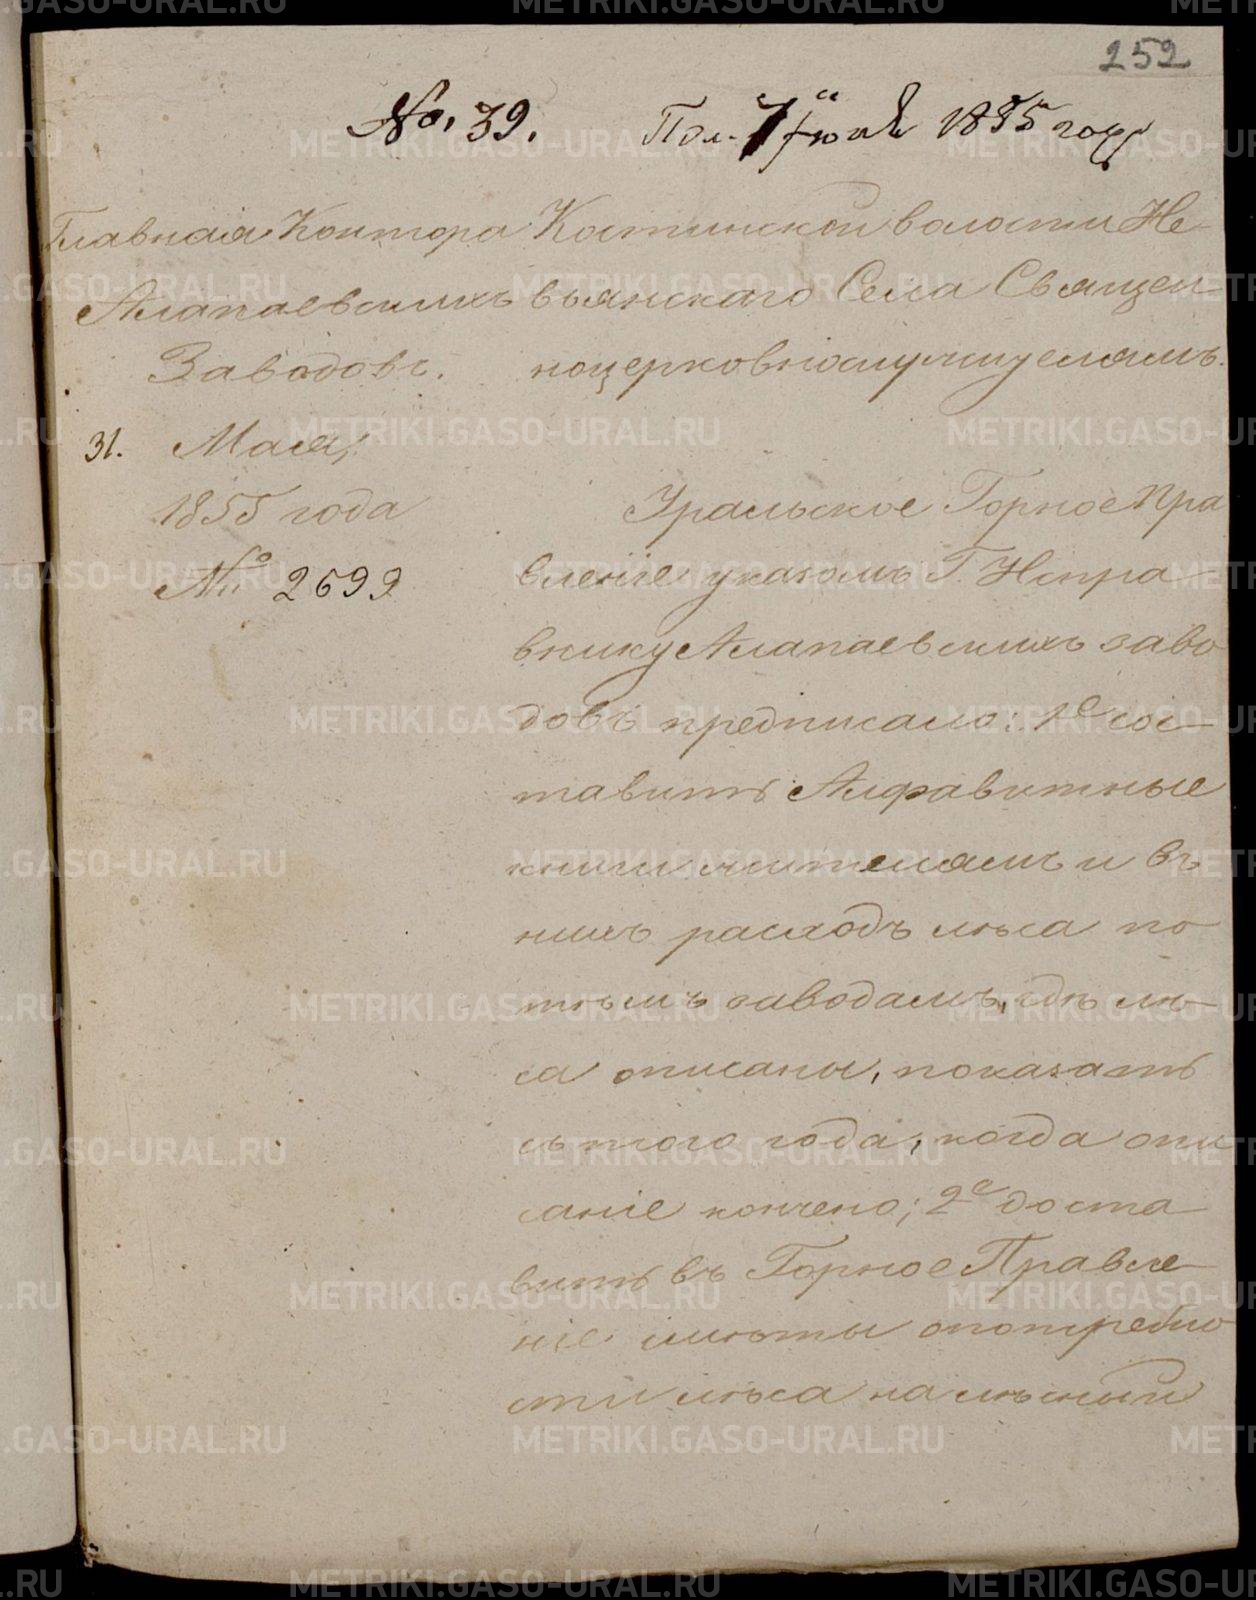 252
No. 39. Пол. 7 Іюня 1855 году
Главная Контора
Алапаевскихъ
Заводовъ.
31. Мая,
1855 года
№ 2699
Костинской волости Не-
вьянскаго Села Священ-
ноцерковнослужителямъ.
Уральское Горное Пра
вленіе указомъ Г. Испра-
внику Алапаевскихъ заво
довъ предписало: 1е сос-
тавить Алфавитные
книги жителямъ и въ
нихъ расходъ лѣса по
тѣмъ заводамъ, гдѣ лѣ-
са описаны, показать
съ того года, когда опи
саніе кончено; 2е доста
вить въ Горное Правле-
ніе смѣты опотребно
сти лѣса на лѣсный
METRIKI.GASO-URAL.RU